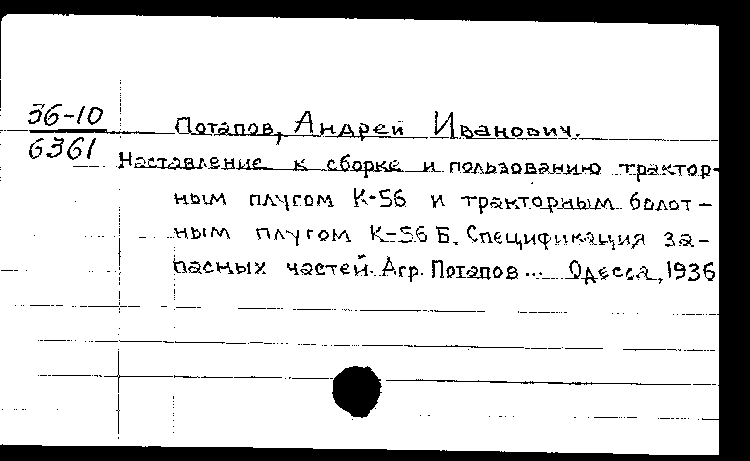 36-10
6361
Потапов, Андрей Иванович.
Наставление к сборке и пользованию трактор-
ным плугом К-56 и тракторным болот-
ным плугом К-56 Б. Спецификация за-
пасных частей. Агр. Потапов... Одесса, 1936